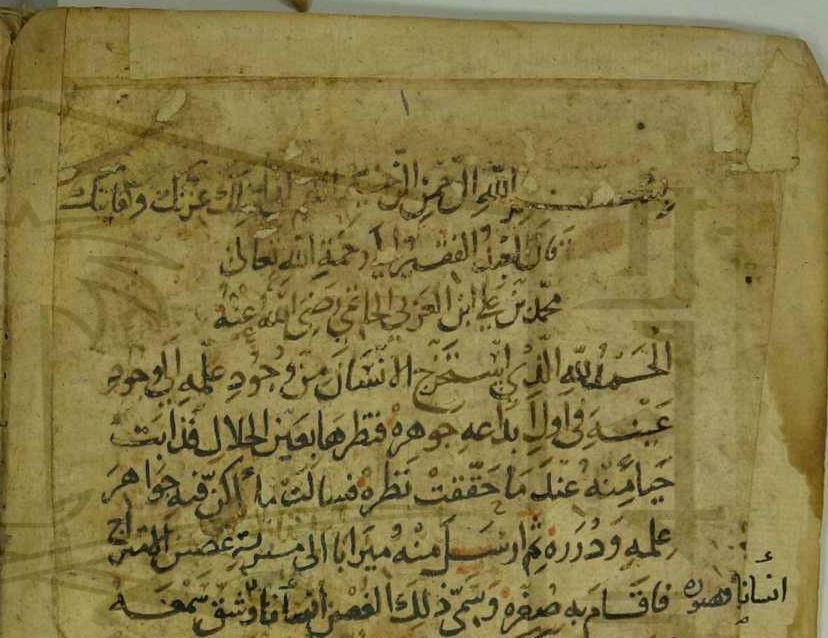 ١
بسم الله الرحمن الرحيم اللهم اني اسالك عزتك
قال العبد الفقير الى رحمة الله تعالى
محمد بن علي ابن العربي الحاتمي رضي الله عنه
الحمد لله الذي استخرج الانسان من وجود علمه الى وجود
عينه في اول ابداعه جوهرة فنظرها بعين الجلال فذابت
حياء منه عند ما حققت نظره فسالت ماء اكن فيه جواهر
علمه ودرره ثم ارسل منه ميزابا الى غصن
فاقام به صغره وسمى ذلك الغصن انسانا وشق سمعه
انسانا وصوره